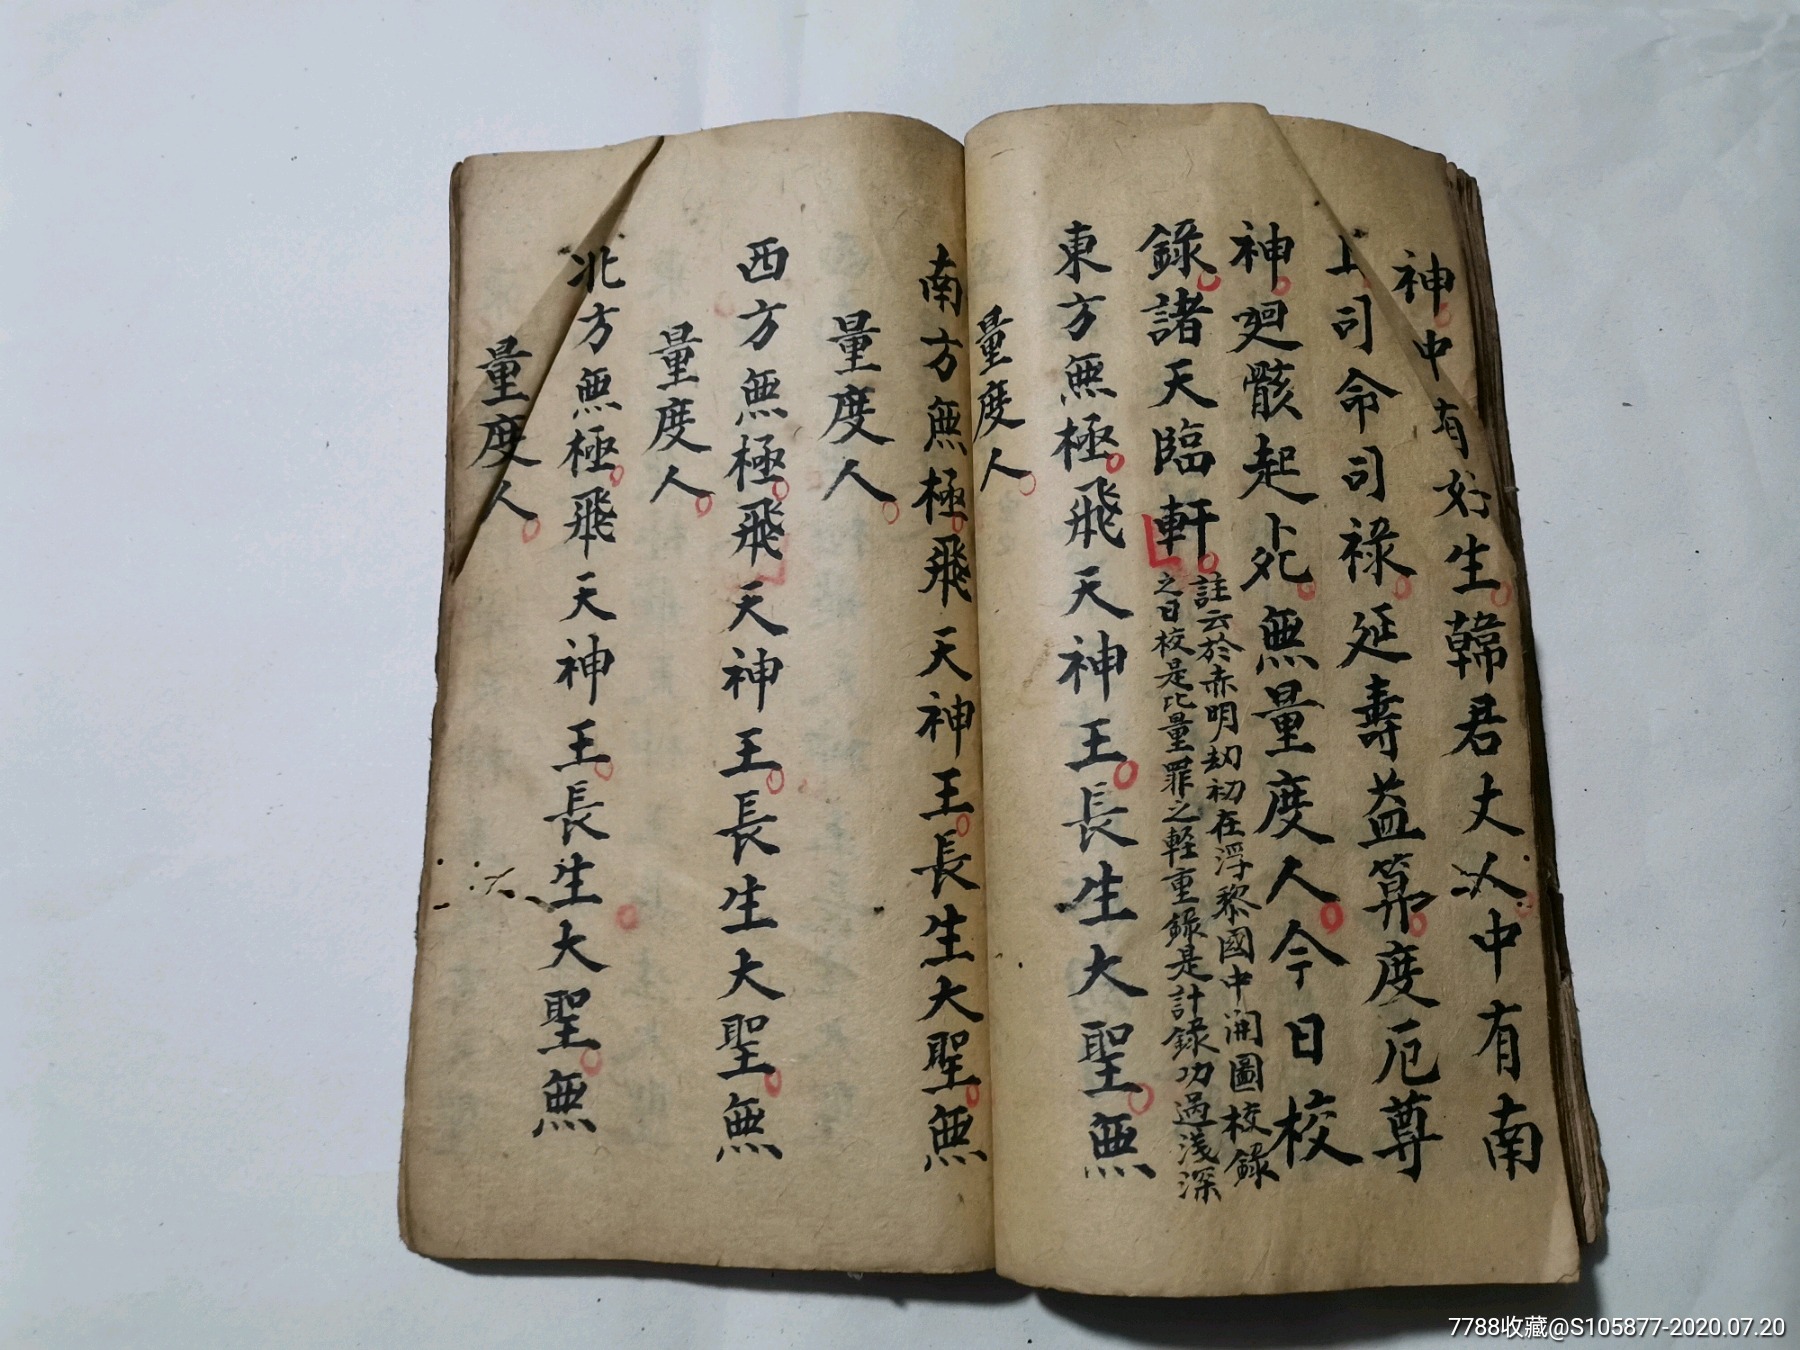 神中有好生韓君丈人中有南
上司命司禄延壽益算度厄尊
神廻骸起死無量度人今日校
錄諸天臨軒
註云於赤明劫初在浮黎國中開圖校錄
之日校是比量罪之軽重錄是計錄功過淺深
東方無極飛天神王長生大聖無
量度人
南方無極飛天神王長生大聖無
量度人
西方無極飛天神王長生大聖無
量度人
北方無極飛天神王長生大聖無
量度人
7788收藏@S105877-2020.07.20